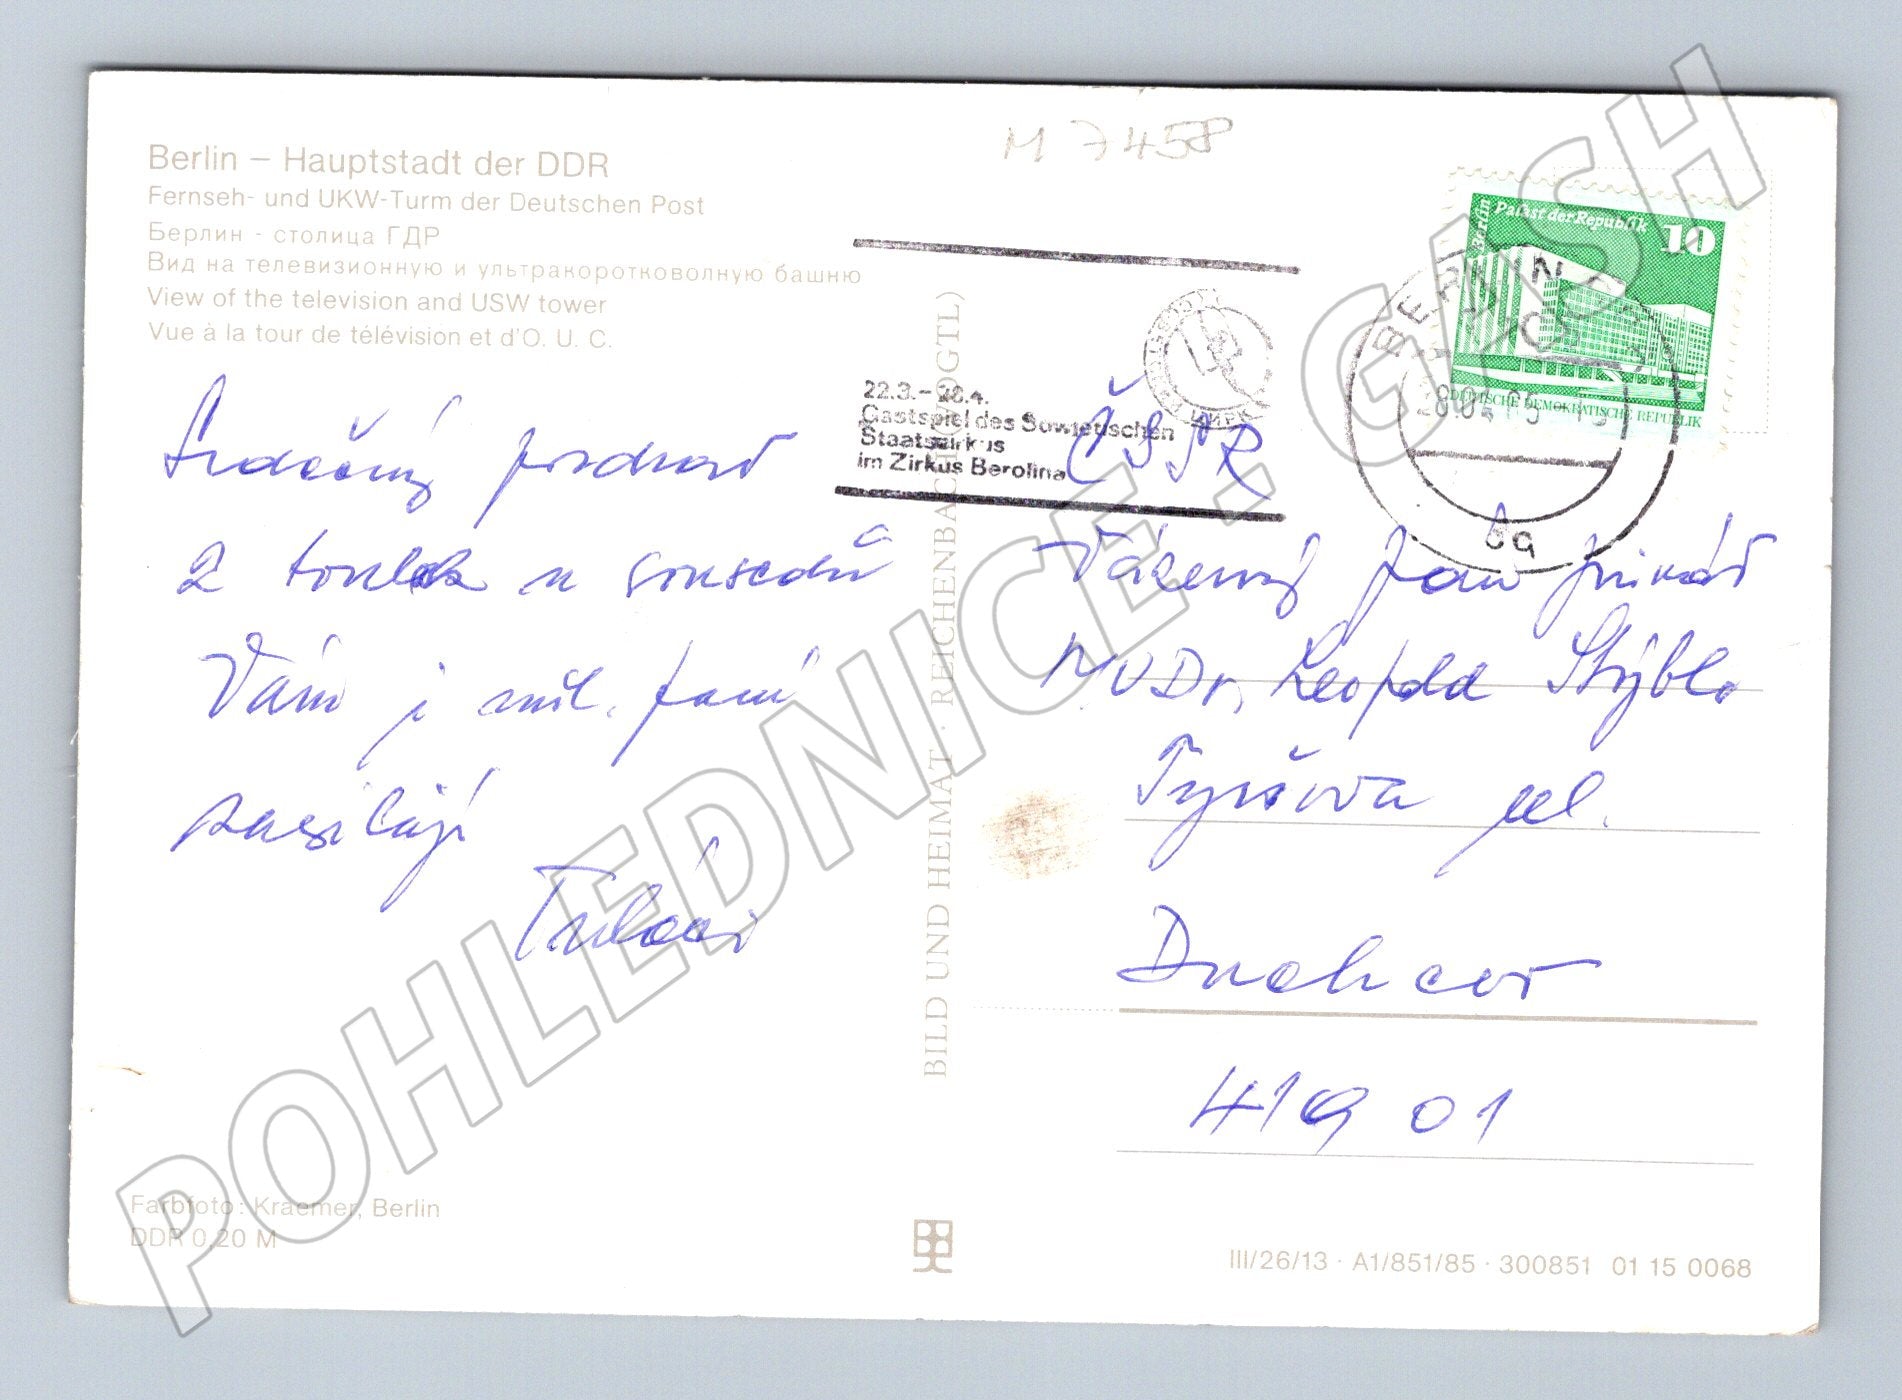 M 7458
Berlin – Hauptstadt der DDR
Fernseh- und UKW-Turm der Deutschen Post
Берлин - столица ГДР
Вид на телевизионную и ультракоротковолную башню
View of the television and USW tower
Vue à la tour de télévision et d'O. U. C.
Srdečný pozdrav
z toulek u sousedů
Vám i mil. paní
zasílají
22.3.– 28.4.
Gastspiel des Sowjetischen
Staatszirkus
im Zirkus Berolina
Berlin Palast der Republik 10
DEUTSCHE DEMOKRATISCHE REPUBLIK
BERLIN
28.04.85
ba
ČSSR
Vážený pan primář
MVDr. Leopold Stýblo
Tyršova ul.
Duchcov
419 01
BILD UND HEIMAT · REICHENBACH (VOGTL)
Farbfoto: Kraemer, Berlin
DDR 0,20 M
III/26/13 · A1/851/85 · 300851 01 15 0068
POHLEDNICE . GASH